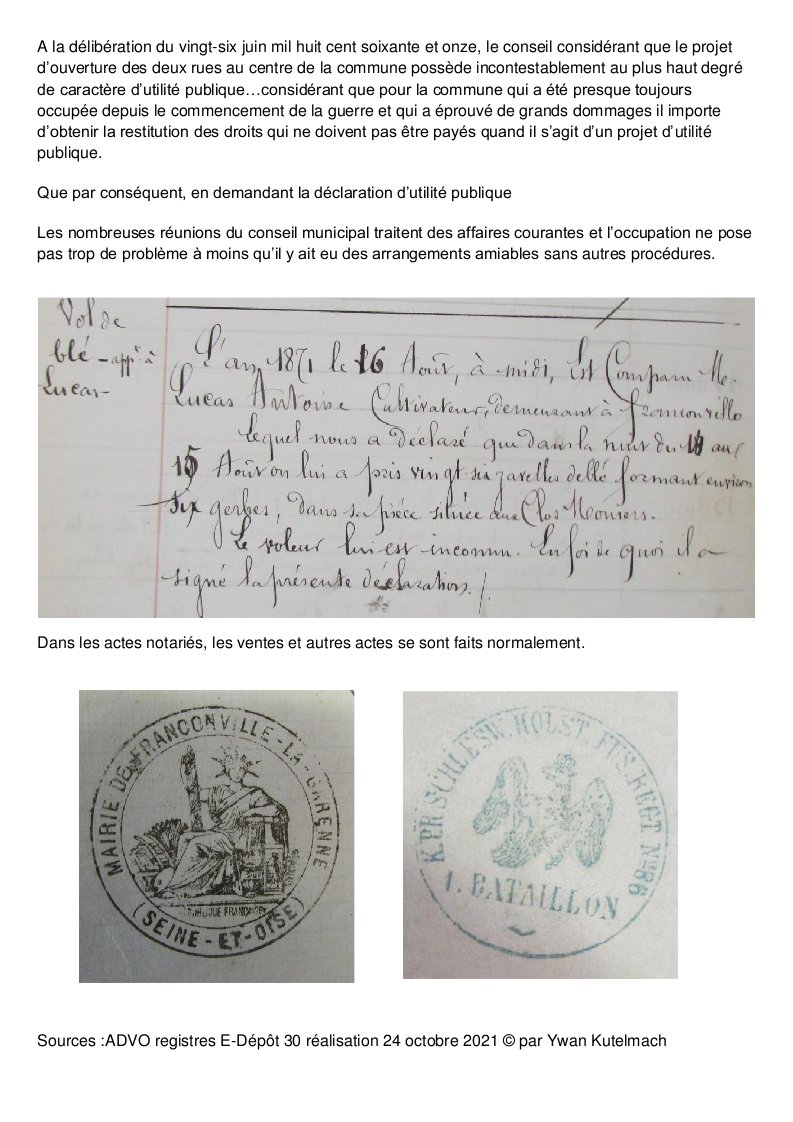 A la délibération du vingt-six juin mil huit cent soixante et onze, le conseil considérant que le projet
d’ouverture des deux rues au centre de la commune possède incontestablement au plus haut degré
de caractère d’utilité publique…considérant que pour la commune qui a été presque toujours
occupée depuis le commencement de la guerre et qui a éprouvé de grands dommages il importe
d’obtenir la restitution des droits qui ne doivent pas être payés quand il s’agit d’un projet d’utilité
publique.
Que par conséquent, en demandant la déclaration d’utilité publique
Les nombreuses réunions du conseil municipal traitent des affaires courantes et l’occupation ne pose
pas trop de problème à moins qu’il y ait eu des arrangements amiables sans autres procédures.
Vol de
blé - appt à
Lucas
L'an 1871 le 16 Août, à midi, Est Comparu M.
Lucas Antoine Cultivateur, demeurant à franconville
lequel nous a déclaré que dans la nuit du au
15 Août on lui a pris vingt-six javelles de blé formant environ
six gerbes, dans sa pièce située aux Clos
Le voleur lui est inconnu. En foi de quoi il a
signé la présente déclaration.
Dans les actes notariés, les ventes et autres actes se sont faits normalement.
MAIRIE DE FRANCONVILLE-LA-GARENNE
REPUBLIQUE FRANCAISE
(SEINE-ET-OISE)
K.PR.SCHLESW.HOLST.FUS.REGT No 86
1. BATAILLON
Sources :ADVO registres E-Dépôt 30 réalisation 24 octobre 2021 © par Ywan Kutelmach